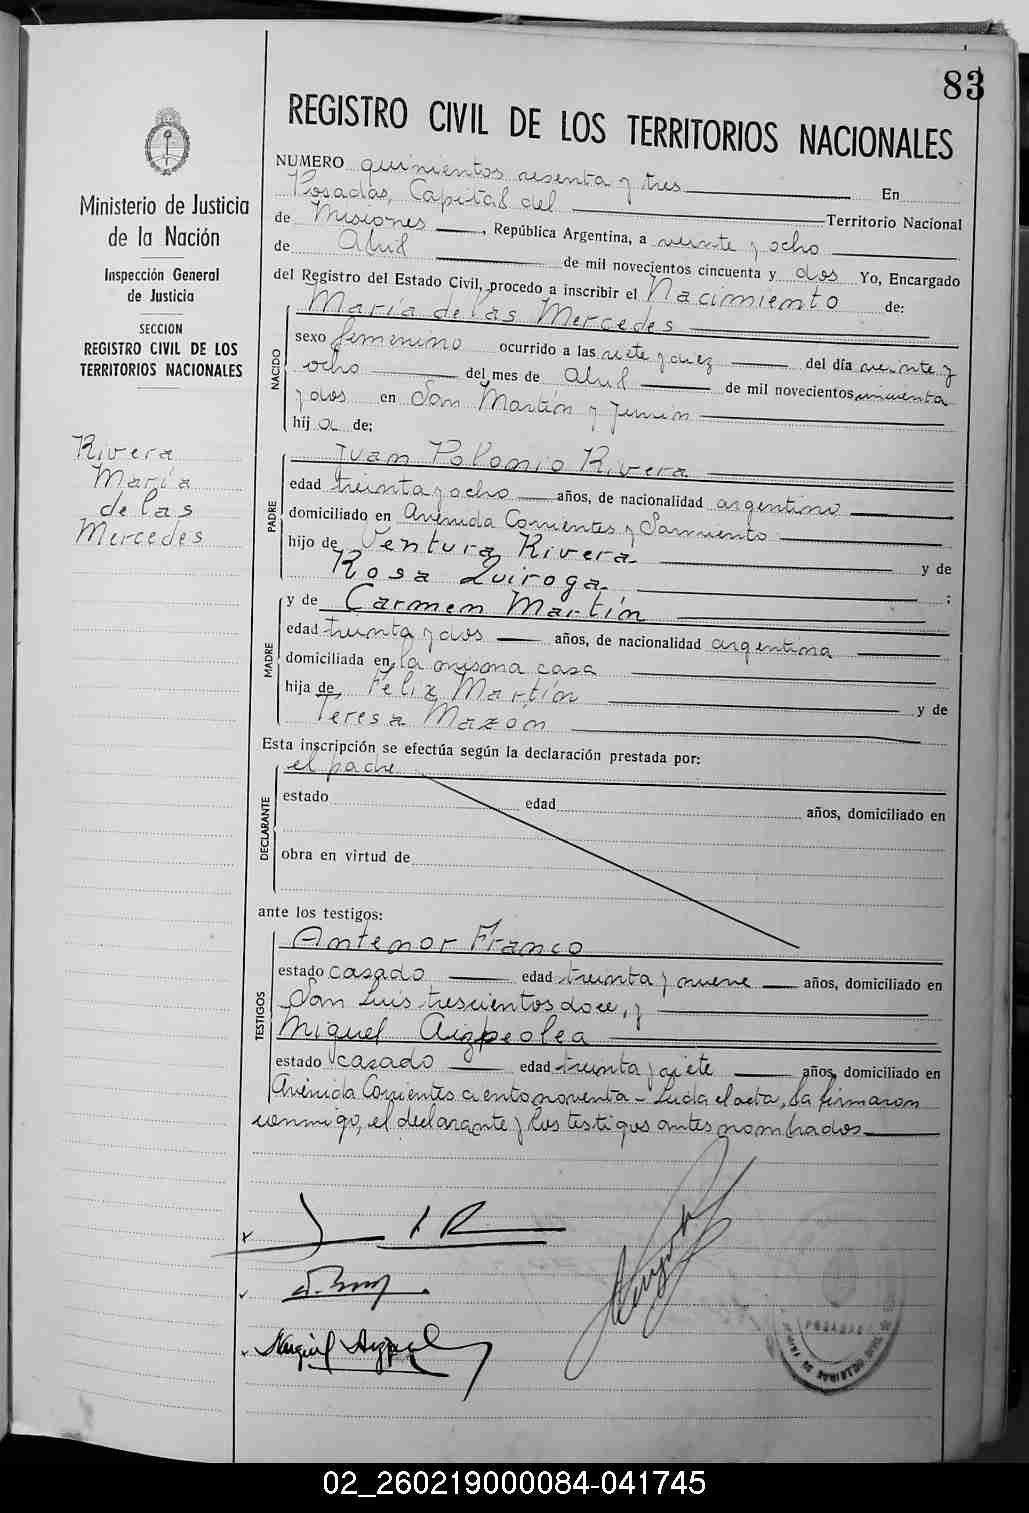 83
REGISTRO CIVIL DE LOS TERRITORIOS NACIONALES
Ministerio de Justicia
de la Nación
Inspección General
de Justicia
SECCION
REGISTRO CIVIL DE LOS
TERRITORIOS NACIONALES
Rivera
María
de las
Mercedes
NUMERO quinientos sesenta y tres En
Posadas, Capital del Territorio Nacional
de Misiones, República Argentina, a veinte y ocho
de Abril de mil novecientos cincuenta y dos Yo, Encargado
del Registro del Estado Civil, procedo a inscribir el Nacimiento de:
NACIDO
María de las Mercedes
sexo femenino ocurrido a las siete y diez del día veinte y
ocho del mes de Abril de mil novecientos cincuenta
y dos en San Martín y Junín
hija de:
PADRE
Juan Polonio Rivera
edad treinta y ocho años, de nacionalidad argentino
domiciliado en Avenida Corrientes y Sarmiento
hijo de Ventura Rivera y de
Rosa Quiroga ;
MADRE
y de Carmen Martín
edad treinta y dos años, de nacionalidad argentina
domiciliada en la misma casa
hija de Felix Martín y de
Teresa Mazón
Esta inscripción se efectúa según la declaración prestada por:
DECLARANTE
el padre
estado edad años, domiciliado en
obra en virtud de
ante los testigos:
TESTIGOS
Antenor Franco
estado casado edad treinta y nueve años, domiciliado en
San Luis trescientos doce, y
Miguel Aizpeolea
estado casado edad treinta y siete años, domiciliado en
Avenida Corrientes ciento noventa - Leída el acta, la firmaron
conmigo, el declarante y los testigos antes nombrados
POSADAS
02_260219000084-041745